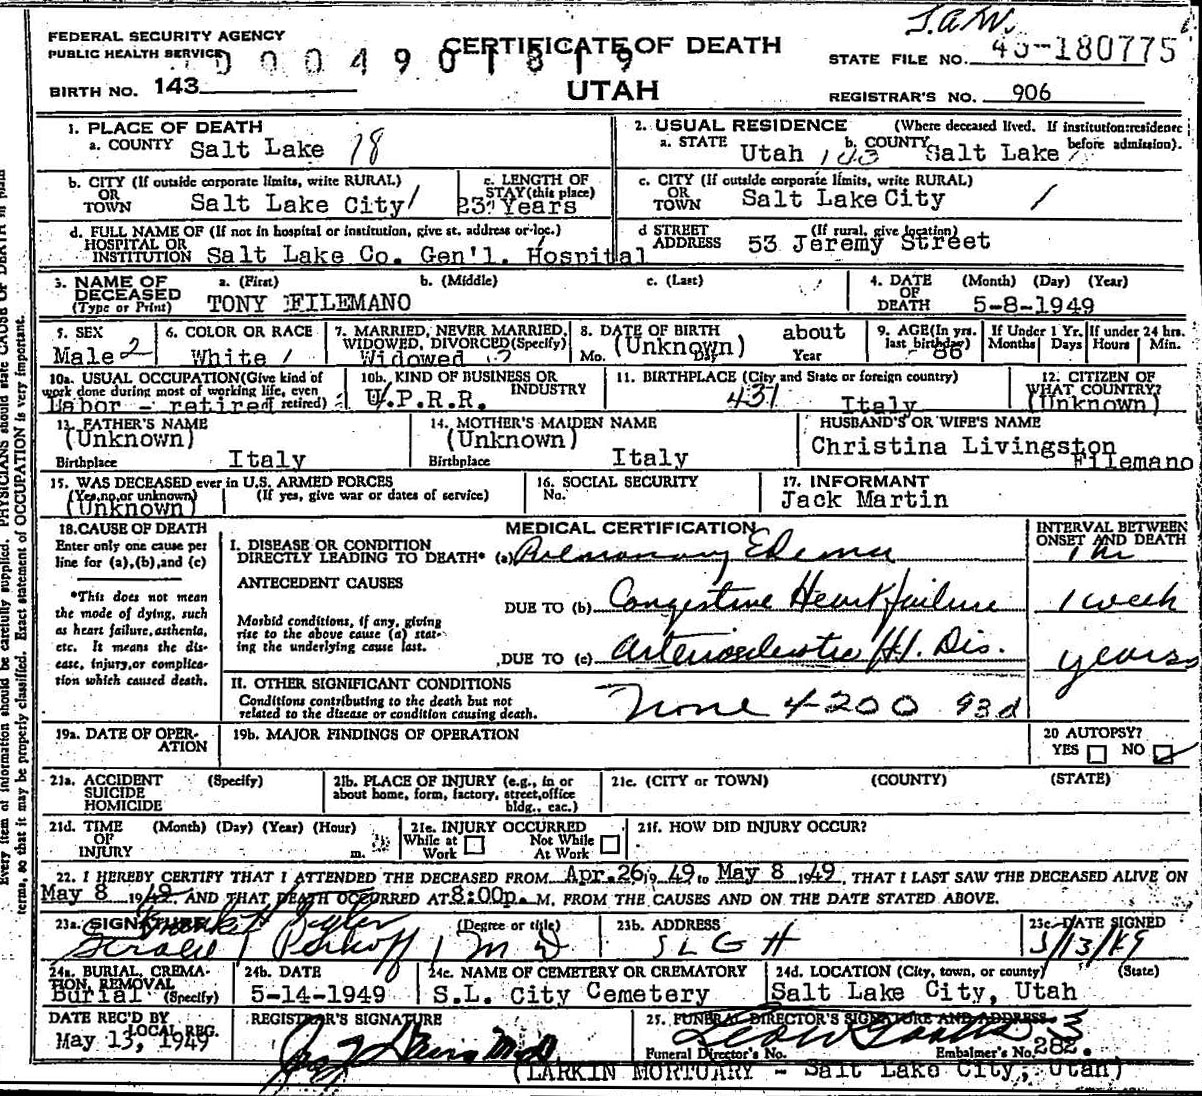 FEDERAL SECURITY AGENCY
PUBLIC HEALTH SERVICE
D 0 0 4 9 0 1 8 1 9
CERTIFICATE OF DEATH
UTAH
STATE FILE NO. 49-180775
BIRTH NO. 143
REGISTRAR'S NO. 906
1. PLACE OF DEATH
a. COUNTY Salt Lake 18
2. USUAL RESIDENCE (Where deceased lived. If institution:residence before admission).
a. STATE Utah 143 b. COUNTY Salt Lake
b. CITY (If outside corporate limits, write RURAL)
OR TOWN Salt Lake City
c. LENGTH OF STAY (this place) 23 Years
c. CITY (If outside corporate limits, write RURAL)
OR TOWN Salt Lake City
d. FULL NAME OF (If not in hospital or institution, give st. address or loc.)
HOSPITAL OR INSTITUTION Salt Lake Co. Gen'l. Hospital
d STREET ADDRESS (If rural, give location) 53 Jeremy Street
3. NAME OF DECEASED (Type or Print)
a. (First) b. (Middle) c. (Last)
TONY FILEMANO
4. DATE OF DEATH (Month) (Day) (Year)
5-8-1949
5. SEX Male 2
6. COLOR OR RACE White 1
7. MARRIED, NEVER MARRIED, WIDOWED, DIVORCED(Specify) Widowed
8. DATE OF BIRTH about
(Unknown)
Mo. Day Year
9. AGE(In yrs. last birthday) 86
If Under 1 Yr. Months Days
If under 24 hrs. Hours Min.
10a. USUAL OCCUPATION(Give kind of work done during most of working life, even if retired)
Labor - retired
10b. KIND OF BUSINESS OR INDUSTRY
U.P.R.R.
11. BIRTHPLACE (City and State or foreign country)
431 Italy
12. CITIZEN OF WHAT COUNTRY?
(Unknown)
13. FATHER'S NAME
(Unknown)
Birthplace Italy
14. MOTHER'S MAIDEN NAME
(Unknown)
Birthplace Italy
HUSBAND'S OR WIFE'S NAME
Christina Livingston
Filemano
15. WAS DECEASED ever in U.S. ARMED FORCES
(Yes, no, or unknown) (If yes, give war or dates of service)
(Unknown)
16. SOCIAL SECURITY
No.
17. INFORMANT
Jack Martin
18. CAUSE OF DEATH
Enter only one cause per line for (a),(b),and (c)
*This does not mean the mode of dying, such as heart failure, asthenia, etc. It means the disease, injury, or complication which caused death.
MEDICAL CERTIFICATION
INTERVAL BETWEEN ONSET AND DEATH
I. DISEASE OR CONDITION
DIRECTLY LEADING TO DEATH* (a) Pulmonary Edema
ANTECEDENT CAUSES
DUE TO (b) Congestive Heart failure 1 week
Morbid conditions, if any, giving rise to the above cause (a) stating the underlying cause last.
DUE TO (c) Arteriosclerotic Ht. Dis. years
II. OTHER SIGNIFICANT CONDITIONS
Conditions contributing to the death but not related to the disease or condition causing death.
None 4200 93d
19a. DATE OF OPERATION
19b. MAJOR FINDINGS OF OPERATION
20 AUTOPSY?
YES NO
21a. ACCIDENT (Specify)
SUICIDE
HOMICIDE
21b. PLACE OF INJURY (e.g., in or about home, form, factory, street, office bldg., eac.)
21c. (CITY or TOWN) (COUNTY) (STATE)
21d. TIME OF INJURY (Month) (Day) (Year) (Hour) m.
21e. INJURY OCCURRED
While at Work Not While At Work
21f. HOW DID INJURY OCCUR?
22. I HEREBY CERTIFY THAT I ATTENDED THE DECEASED FROM Apr. 26 19 49 to May 8 1949, THAT I LAST SAW THE DECEASED ALIVE ON
May 8 1949 AND THAT DEATH OCCURRED AT 8:00p. M. FROM THE CAUSES AND ON THE DATE STATED ABOVE.
23a. SIGNATURE (Degree or title)
M D
23b. ADDRESS
S L G H
23c. DATE SIGNED
5/13/49
24a. BURIAL, CREMATION, REMOVAL (Specify)
Burial
24b. DATE
5-14-1949
24c. NAME OF CEMETERY OR CREMATORY
S.L. City Cemetery
24d. LOCATION (City, town, or county) (State)
Salt Lake City, Utah
DATE REC'D BY LOCAL REG.
May 13, 1949
REGISTRAR'S SIGNATURE
25. FUNERAL DIRECTOR'S SIGNATURE AND ADDRESS
Funeral Director's No. Embalmer's No. 282.
(LARKIN MORTUARY - Salt Lake City, Utah)
Every item of information should be carefully supplied. PHYSICIANS should state CAUSE OF DEATH in plain
terms, so that it may be properly classified. Exact statement of OCCUPATION is very important.